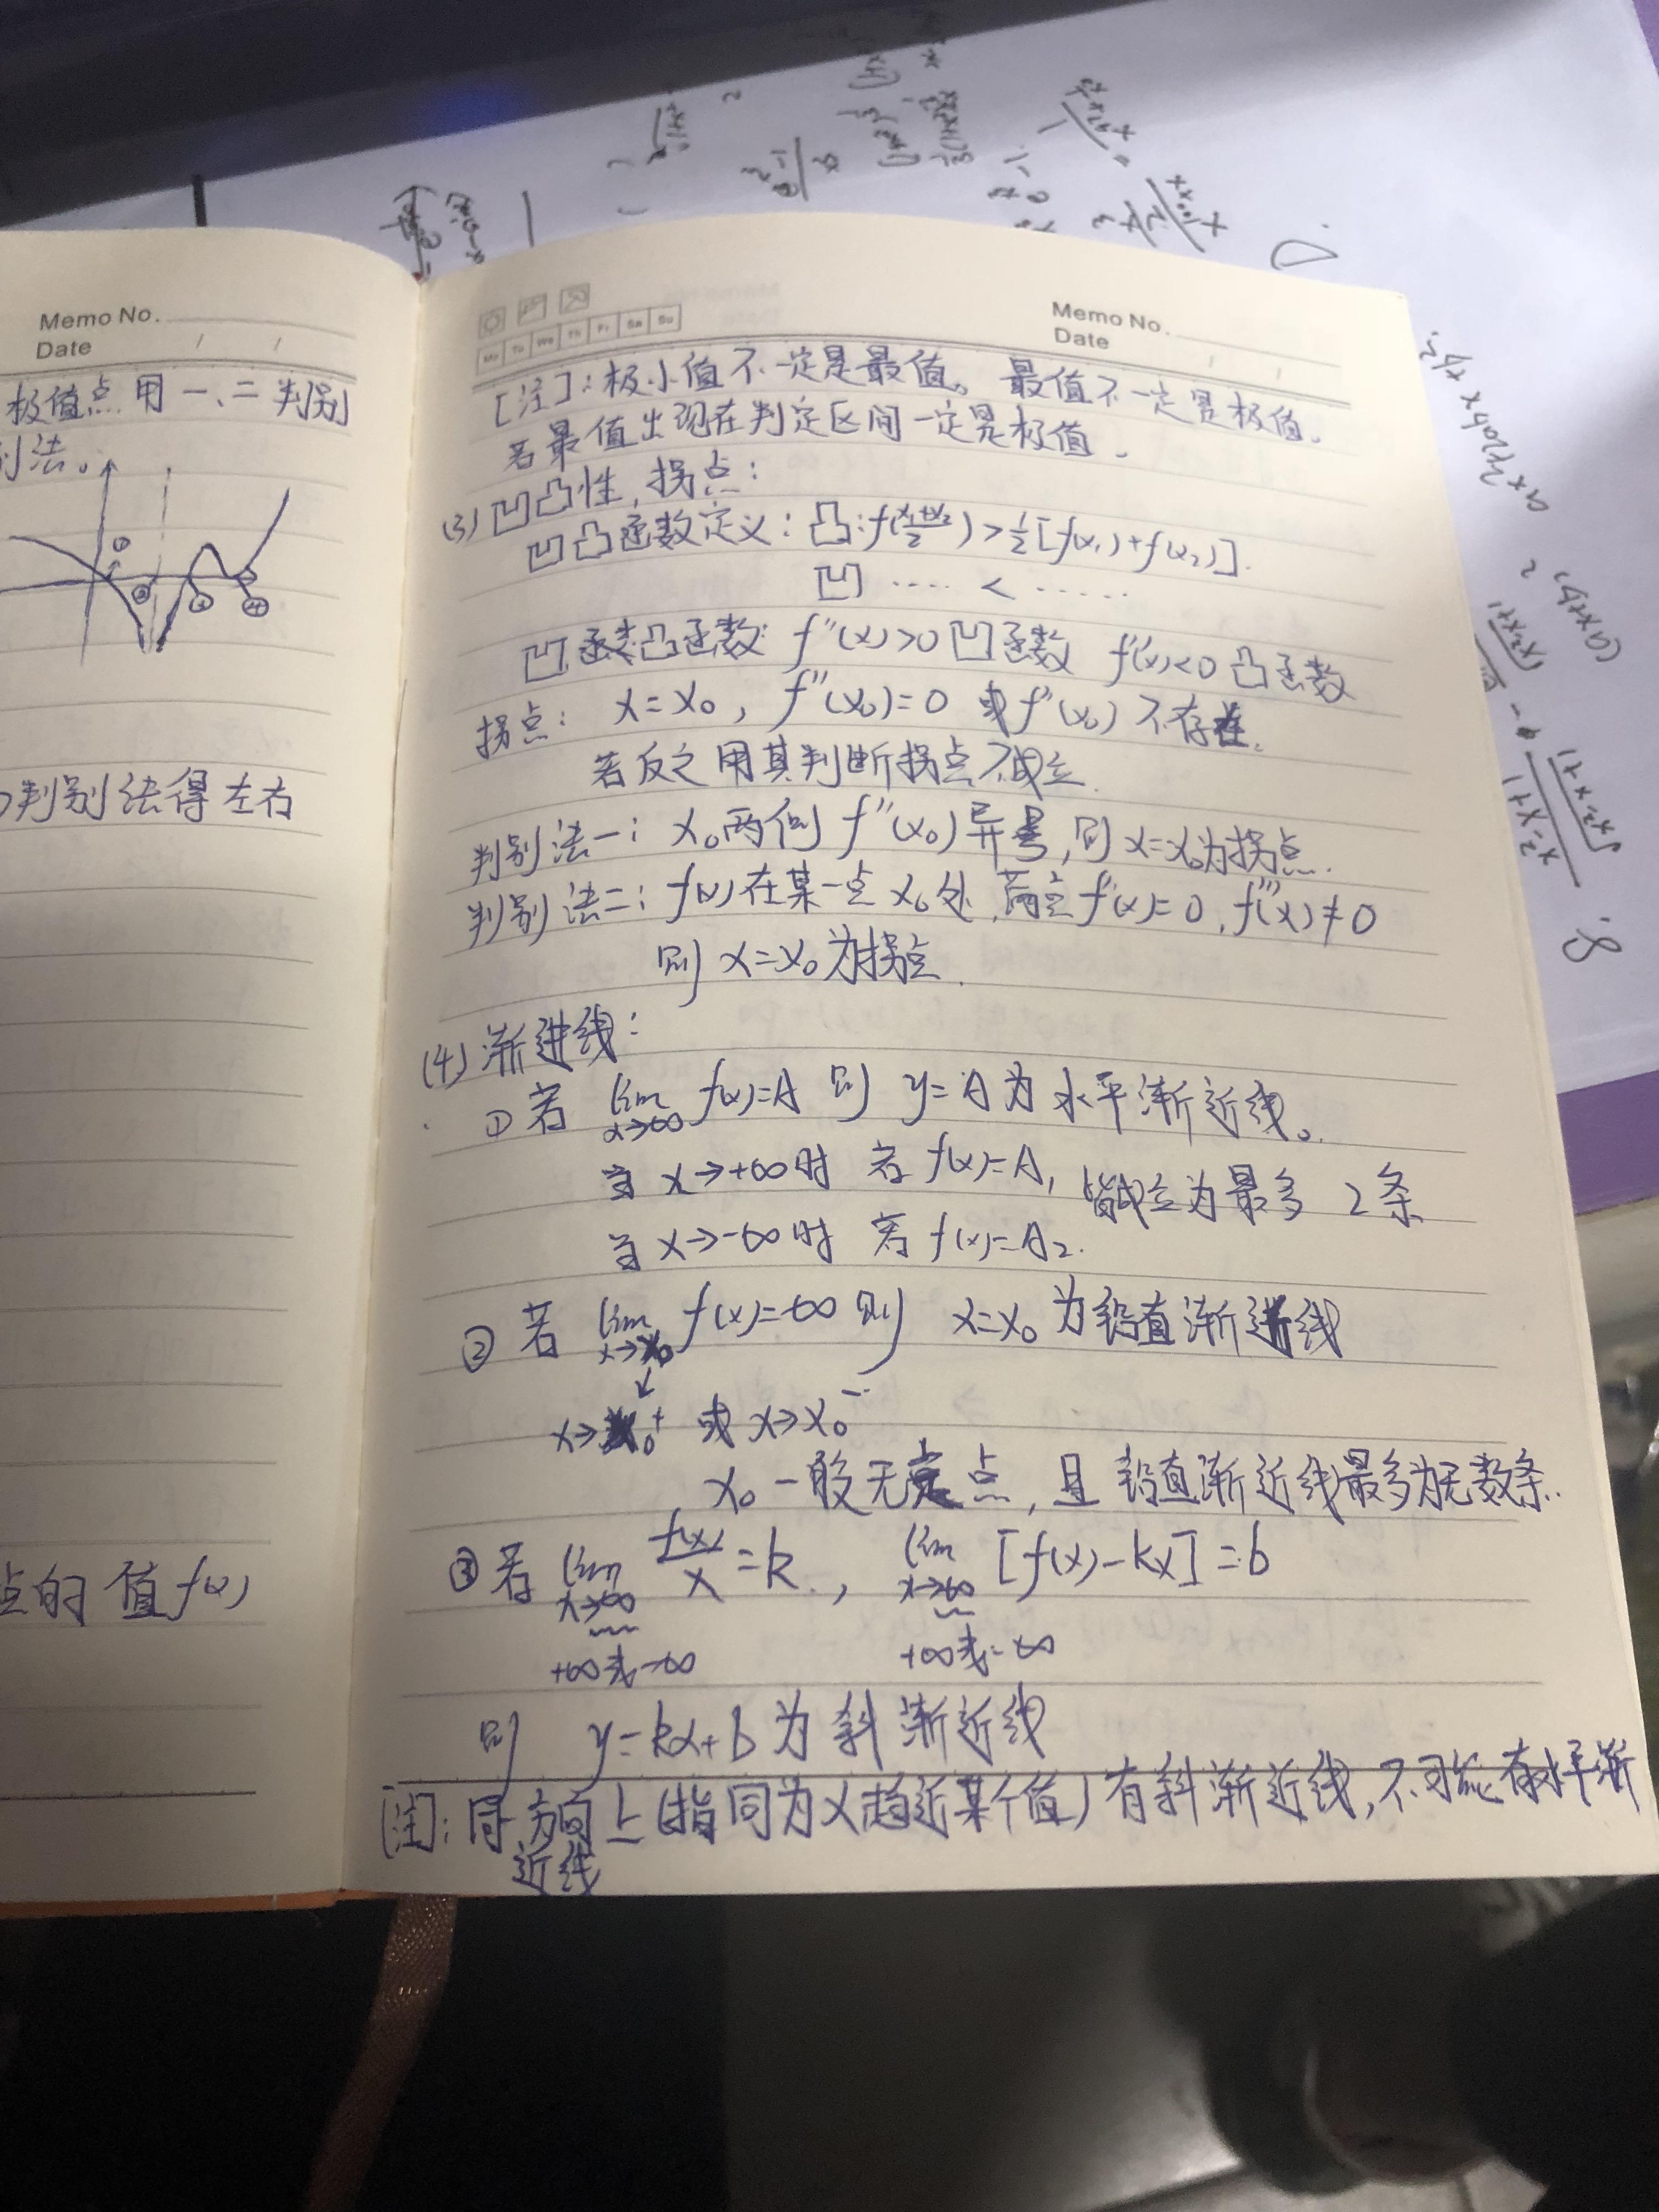 Memo No.
Date
极值点用一、二判别
别法。
判别法得左右
点的值f(x)
Mo Tu We Th Fr Sa Su
Memo No.
Date
[注]:极小值不一定是最值。最值不一定是极值。
若最值出现在判定区间一定是极值.
(3)凹凸性,拐点:
凹凸函数定义:凸:f((x₁+x₂)/2)>1/2[f(x₁)+f(x₂)].
凹 ····· < ······
凹函数凸函数: f''(x)>0凹函数 f''(x)<0凸函数
拐点: x=x₀, f''(x₀)=0 或f''(x₀)不存在.
若反之用其判断拐点不成立.
判别法一: x₀两侧f''(x₀)异号,则x=x₀为拐点.
判别法二: f(x)在某一点x₀处,满足f''(x)=0,f'''(x)≠0
则x=x₀为拐点.
(4)渐进线:
①若 lim x→∞ f(x)=A 则 y=A为水平渐近线。
当x→+∞时 若f(x)=A, 皆成立为最多2条
当x→-∞时 若f(x)=A₂.
②若 lim x→x₀ f(x)=∞则 x=x₀为铅直渐进线
x→x₀⁺ 或x→x₀⁻
x₀一般无定点,且铅直渐近线最多为无数条.
③若 lim x→∞ f(x)/x=k, lim x→∞ [f(x)-kx]=b
+∞或-∞ +∞或-∞
则 y=kx+b为斜渐近线
[注]:同方向上(指同为x趋近某个值)有斜渐近线,不可能有水平渐
近线